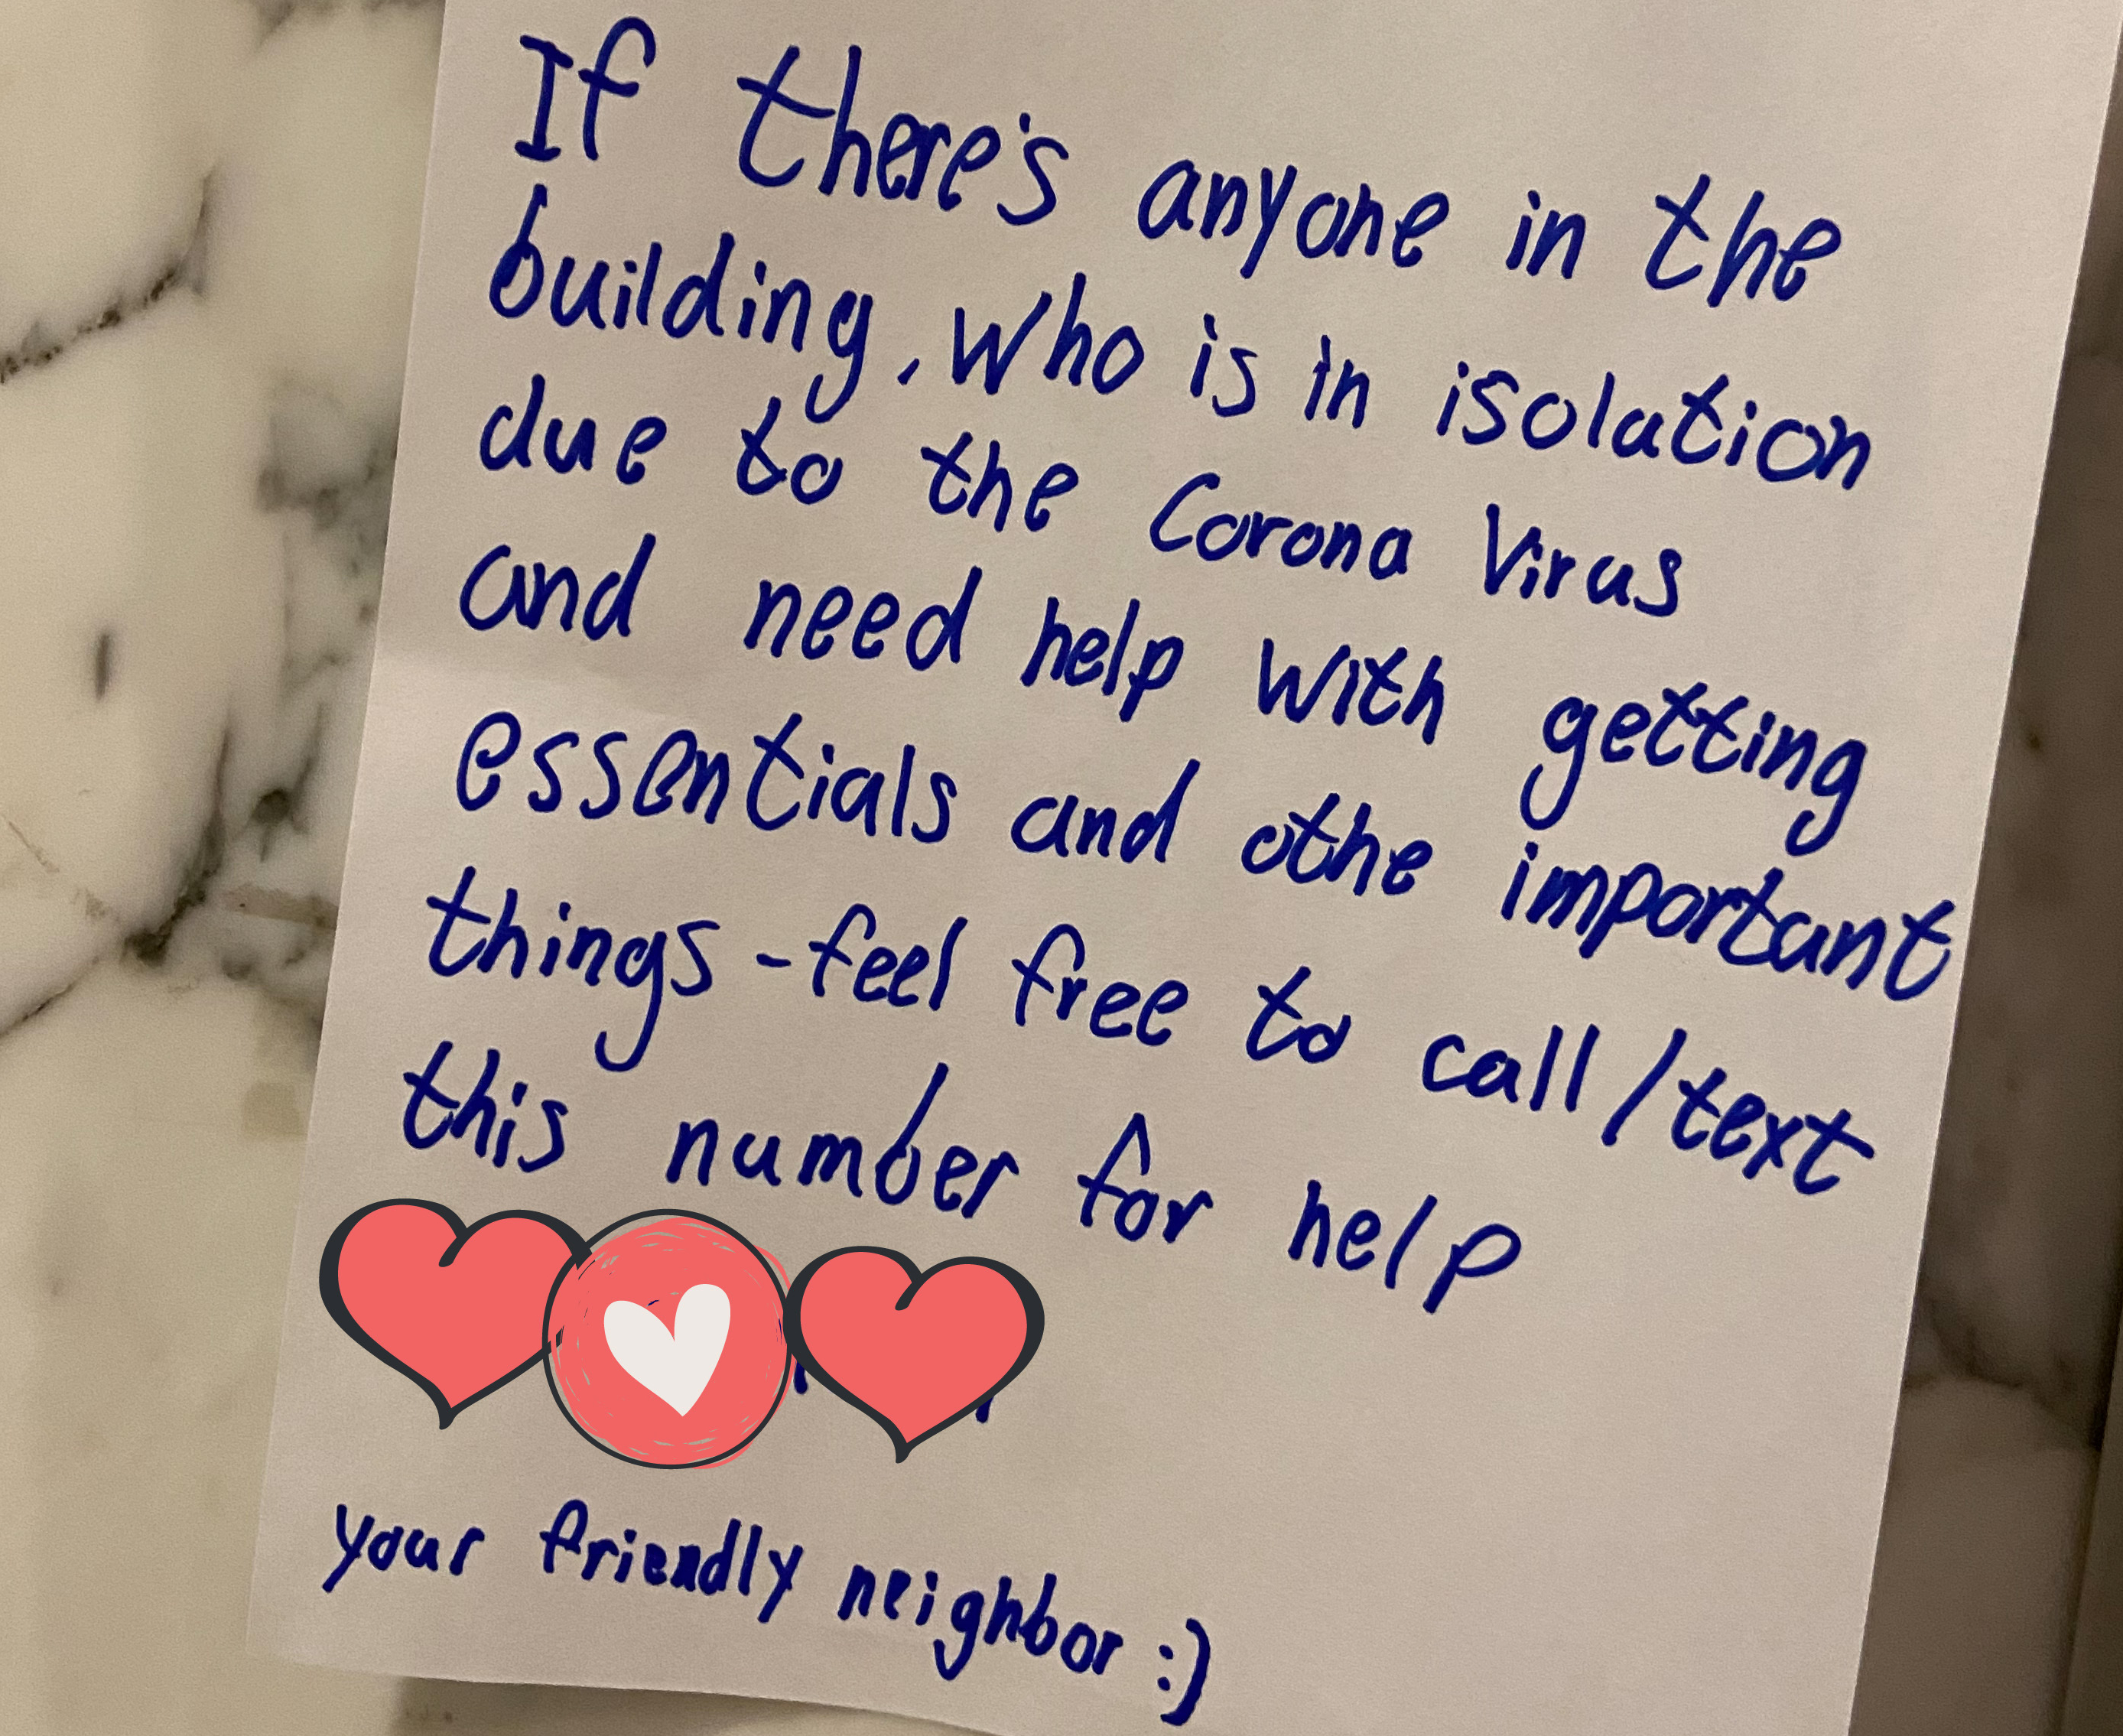 If there's anyone in the
building, who is in isolation
due to the Corona Virus
and need help with getting
essentials and othe important
things - feel free to call/text
this number for help
your friendly neighbor :)